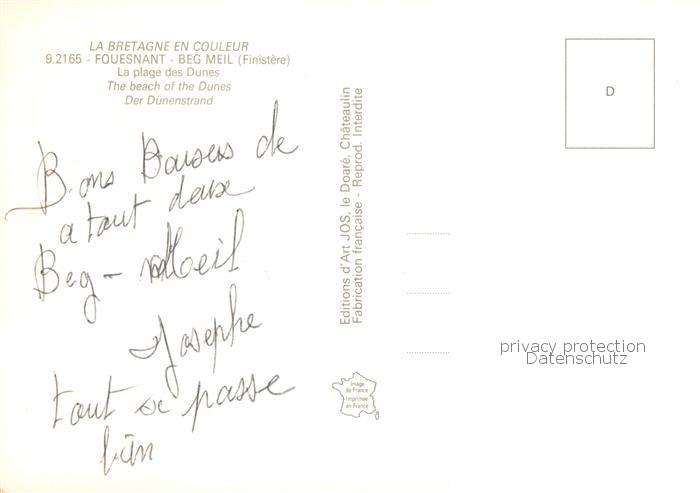 LA BRETAGNE EN COULEUR
9.2165 - FOUESNANT - BEG MEIL (Finistère)
La plage des Dunes
The beach of the Dunes
Der Dünenstrand
Bons Baisers de
a tout deux
Beg-Meil
Josephe
tout se passe
bien
Editions d'Art JOS, le Doaré, Châteaulin
Fabrication française - Reprod. Interdite
D
privacy protection
Datenschutz
Image
de France
Imprimée
en France